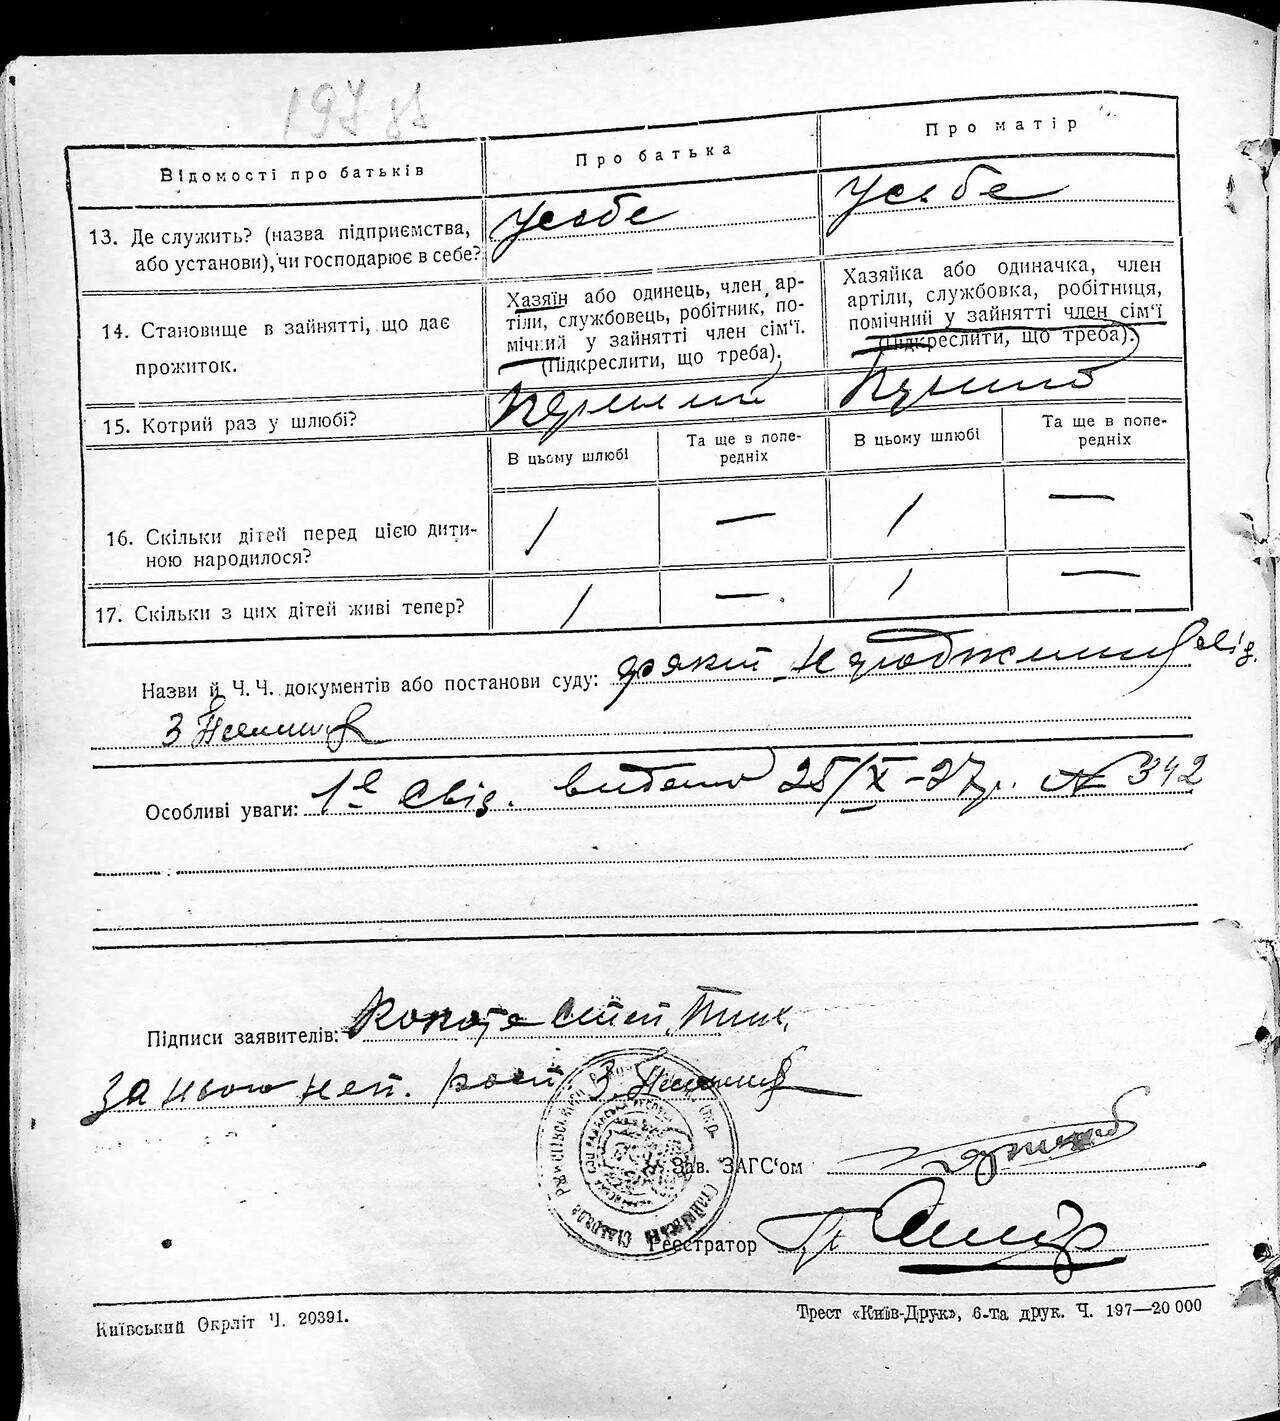 197 зв
Відомості про батьків
Про батька
Про матір
13. Де служить? (назва підприємства,
або установи), чи господарює в себе?
У себе
У себе
14. Становище в зайнятті, що дає
прожиток.
Хазяїн або одинець, член ар-
тілі, службовець, робітник, по-
мічний у зайнятті член сім'ї.
(Підкреслити, що треба).
Хазяйка або одиначка, член
артілі, службовка, робітниця,
помічний у зайнятті член сім'ї
(Підкреслити, що треба).
15. Котрий раз у шлюбі?
Перший
В цьому шлюбі
Та ще в попе-
редніх
В цьому шлюбі
Та ще в попе-
редніх
16. Скільки дітей перед цією дити-
ною народилося?
1 — 1 —
17. Скільки з цих дітей живі тепер?
1 — 1 —
Назви й Ч. Ч. документів або постанови суду:
факт народження
З
Особливі уваги: 1е свід. видано 25/X-27р. № 342
Підписи заявителів:
за нього неп. розп
Зав. ЗАГС'ом
Реєстратор
Київський Окрліт Ч. 20391.
Трест «Київ-Друк», 6-та друк. Ч. 197—20 000